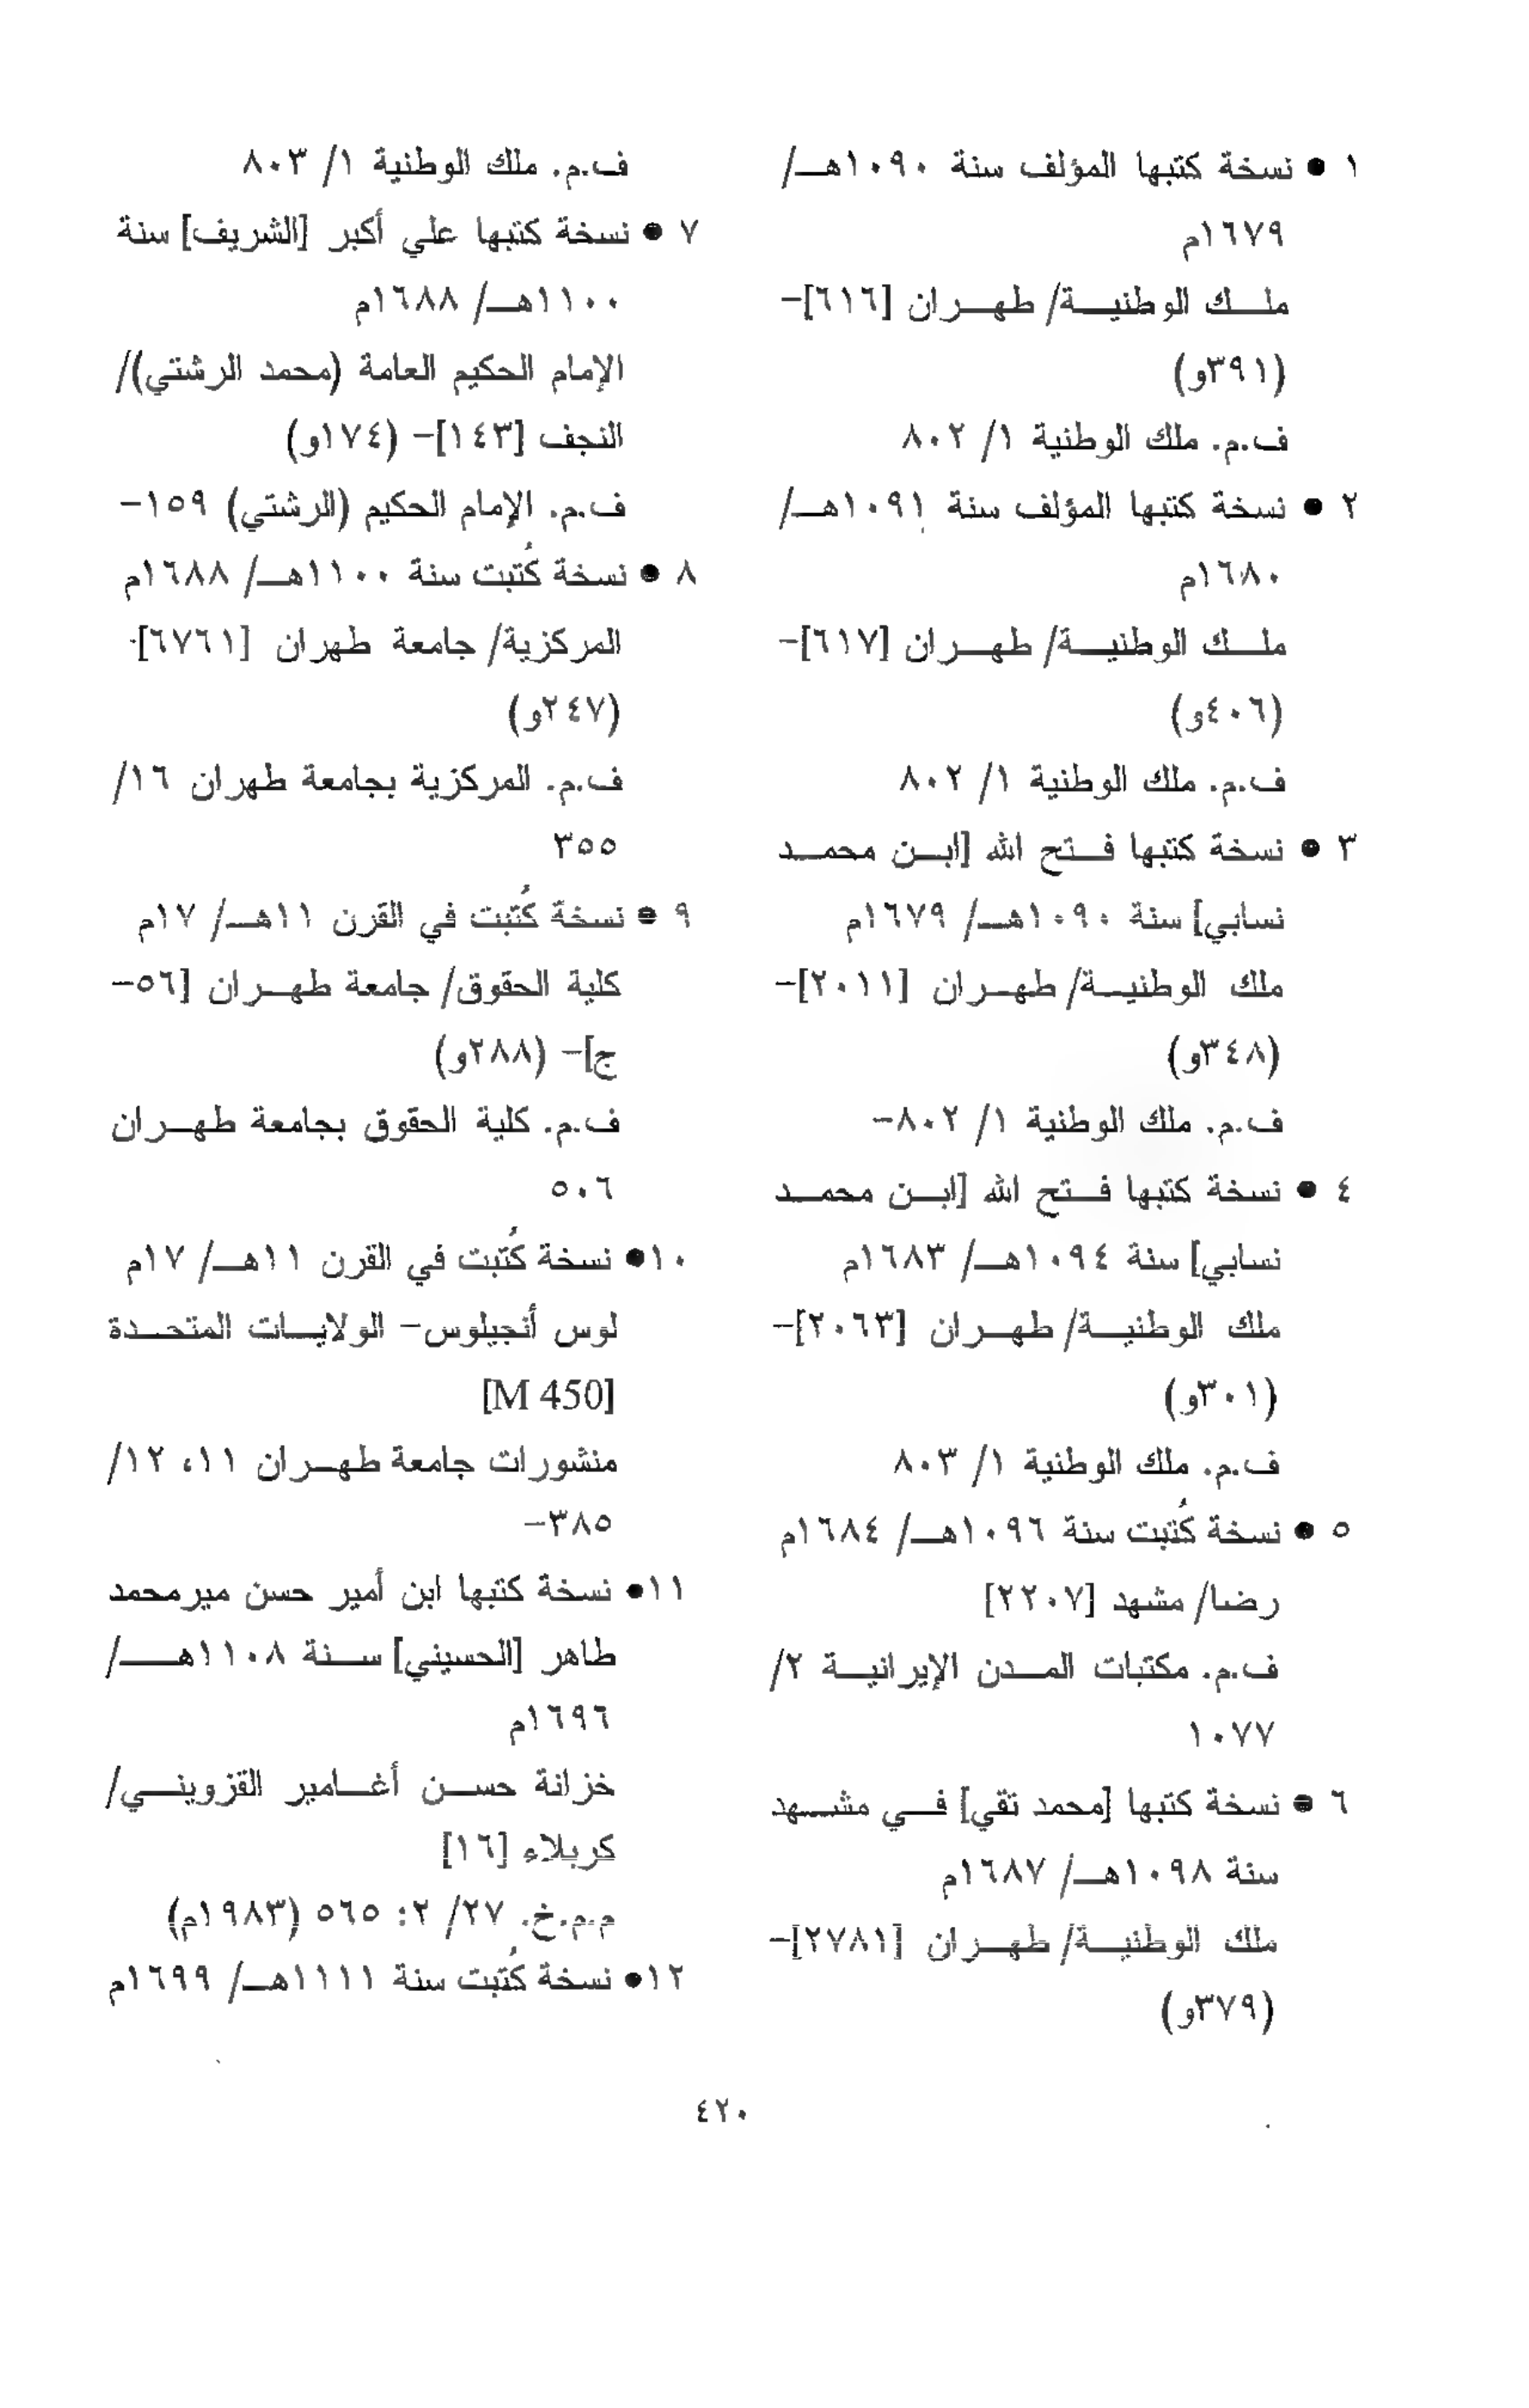 ١ • نسخة كتبها المؤلف سنة ١٠٩٠هـ/
١٦٧٩م
ملك الوطنية/ طهران [٦١٦]-
(٣٩١و)
ف.م. ملك الوطنية ١/ ٨٠٢
٢ • نسخة كتبها المؤلف سنة ١٠٩١هـ/
١٦٨٠م
ملك الوطنية/ طهران [٦١٧]-
(٤٠٦و)
ف.م. ملك الوطنية ١/ ٨٠٢
٣ • نسخة كتبها فتح الله [ابن محمد
نسابي] سنة ١٠٩٠هـ/ ١٦٧٩م
ملك الوطنية/ طهران [٢٠١١]-
(٣٤٨و)
ف.م. ملك الوطنية ١/ ٨٠٢-
٤ • نسخة كتبها فتح الله [ابن محمد
نسابي] سنة ١٠٩٤هـ/ ١٦٨٣م
ملك الوطنية/ طهران [٢٠٦٣]-
(٣٠١و)
ف.م. ملك الوطنية ١/ ٨٠٣
٥ • نسخة كُتبت سنة ١٠٩٦هـ/ ١٦٨٤م
رضا/ مشهد [٢٢٠٧]
ف.م. مكتبات المدن الإيرانية ٢/
١٠٧٧
٦ • نسخة كتبها [محمد تقي] في مشهد
سنة ١٠٩٨هـ/ ١٦٨٧م
ملك الوطنية/ طهران [٢٧٨١]-
(٣٧٩و)
ف.م. ملك الوطنية ١/ ٨٠٣
٧ • نسخة كتبها علي أكبر [الشريف] سنة
١١٠٠هـ/ ١٦٨٨م
الإمام الحكيم العامة (محمد الرشتي)/
النجف [١٤٣]- (١٧٤و)
ف.م. الإمام الحكيم (الرشتي) ١٥٩-
٨ • نسخة كُتبت سنة ١١٠٠هـ/ ١٦٨٨م
المركزية/ جامعة طهران [٦٧٦١]-
(٢٤٧و)
ف.م. المركزية بجامعة طهران ١٦/
٣٥٥
٩ • نسخة كُتبت في القرن ١١هـ/ ١٧م
كلية الحقوق/ جامعة طهران [٥٦-
ج]- (٢٨٨و)
ف.م. كلية الحقوق بجامعة طهران
٥٠٦
١٠• نسخة كُتبت في القرن ١١هـ/ ١٧م
لوس أنجيلوس- الولايات المتحدة
[M 450]
منشورات جامعة طهران ١١، ١٢/
٣٨٥-
١١• نسخة كتبها ابن أمير حسن ميرمحمد
طاهر [الحسيني] سنة ١١٠٨هـ/
١٦٩٦م
خزانة حسن أغامير القزويني/
كربلاء [١٦]
م.م.خ. ٢٧/ ٢: ٥٦٥ (١٩٨٣م)
١٢• نسخة كُتبت سنة ١١١١هـ/ ١٦٩٩م
٤٢٠